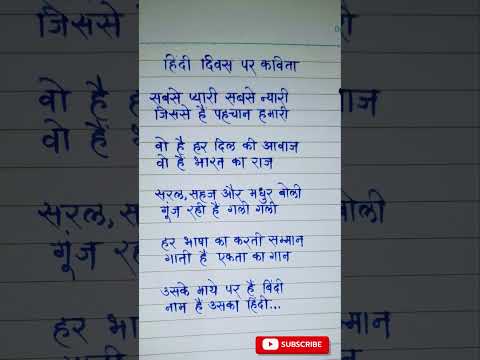 हिंदी दिवस पर कविता
सबसे प्यारी सबसे न्यारी
जिससे है पहचान हमारी
वो है हर दिल की आवाज
वो है भारत का राज
सरल, सहज और मधुर बोली
गूंज रही है गली गली
हर भाषा का करती सम्मान
गाती है एकता का गान
उसके माथे पर है बिंदी
नाम है उसका हिंदी...
SUBSCRIBE